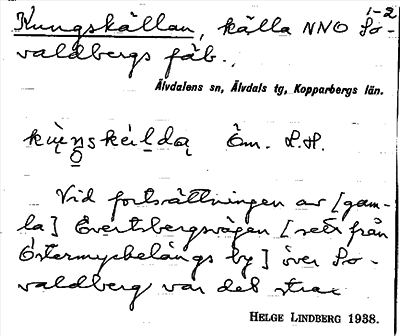 1-2
Kungskällan, källa NNO So-
valdbergs fäb.,
Älvdalens sn, Älvdals tg, Kopparbergs län.
Öm. L.H.
Vid fortsättningen av [gam-
la] Evertsbergsvägen [sett från
Östermyckelängs by] över So-
valdberg var det strax
HELGE LINDBERG 1938.